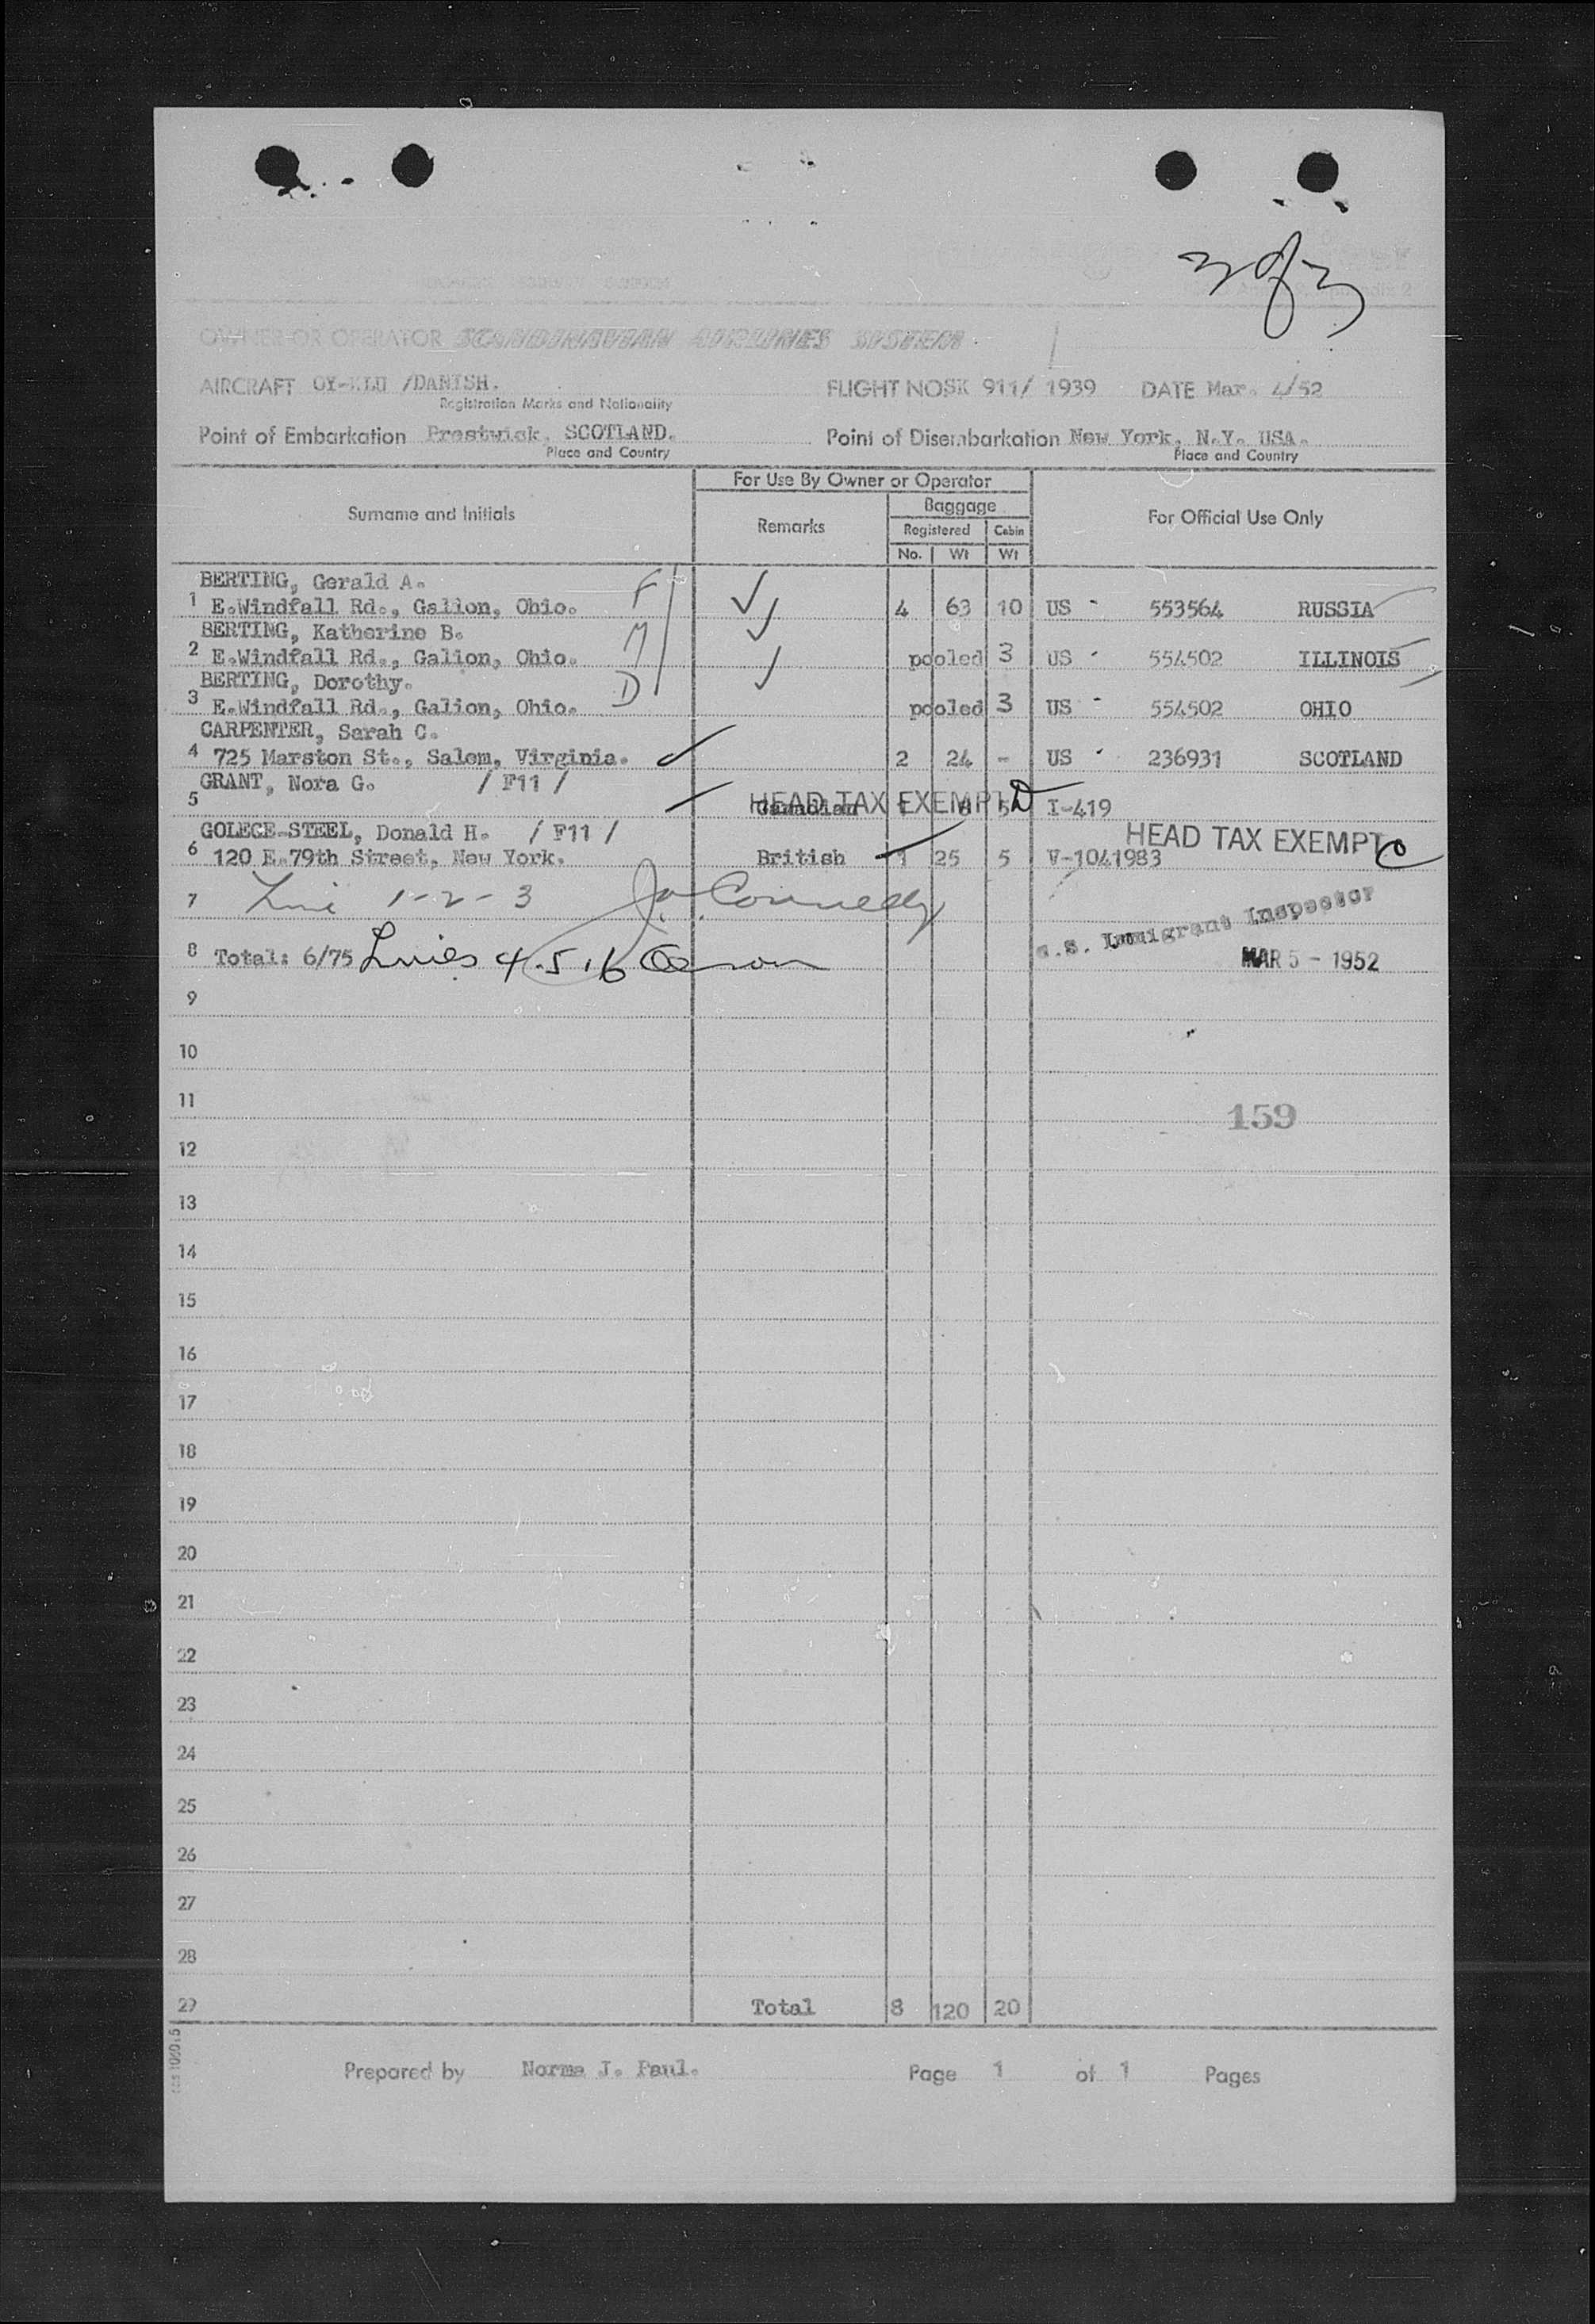 3 of 3
OWNER OR OPERATOR SCANDINAVIAN AIRLINES SYSTEM.
AIRCRAFT /DANISH. FLIGHT NO SK 911/ 1939 DATE Mar. 4/52
Registration Marks and Nationality
Point of Embarkation Prestwick, SCOTLAND. Point of Disembarkation New York, N.Y. USA.
Place and Country Place and Country
For Use By Owner or Operator
Surname and Initials Remarks Baggage For Official Use Only
Registered Cabin
No. Wt Wt
BERTING, Gerald A. F
1 E.Windfall Rd., Galion, Ohio. 4 63 10 US - 553564 RUSSIA
BERTING, Katherine B. M
2 E.Windfall Rd., Galion, Ohio. pooled 3 US - 554502 ILLINOIS
BERTING, Dorothy. D
3 E.Windfall Rd., Galion, Ohio. pooled 3 US - 554502 OHIO
CARPENTER, Sarah C.
4 725 Marston St., Salem, Virginia. 2 24 - US 236931 SCOTLAND
GRANT, Nora G. / F11 /
HEAD TAX EXEMPT
5 Canadian 1 8 5 I-419
GOLECE-STEEL, Donald H. / F11 / HEAD TAX EXEMPT
6 120 E.79th Street, New York. British 1 25 5 V-1041983
7 Line 1-2-3 Connelly
U.S. Immigrant Inspector
8 Total: 6/75 Lines 4.5.6
MAR 5 - 1952
9
10
11
159
12
13
14
15
16
17
18
19
20
21
22
23
24
25
26
27
28
29 Total 8 120 20
Prepared by Norma J. Paul. Page 1 of 1 Pages